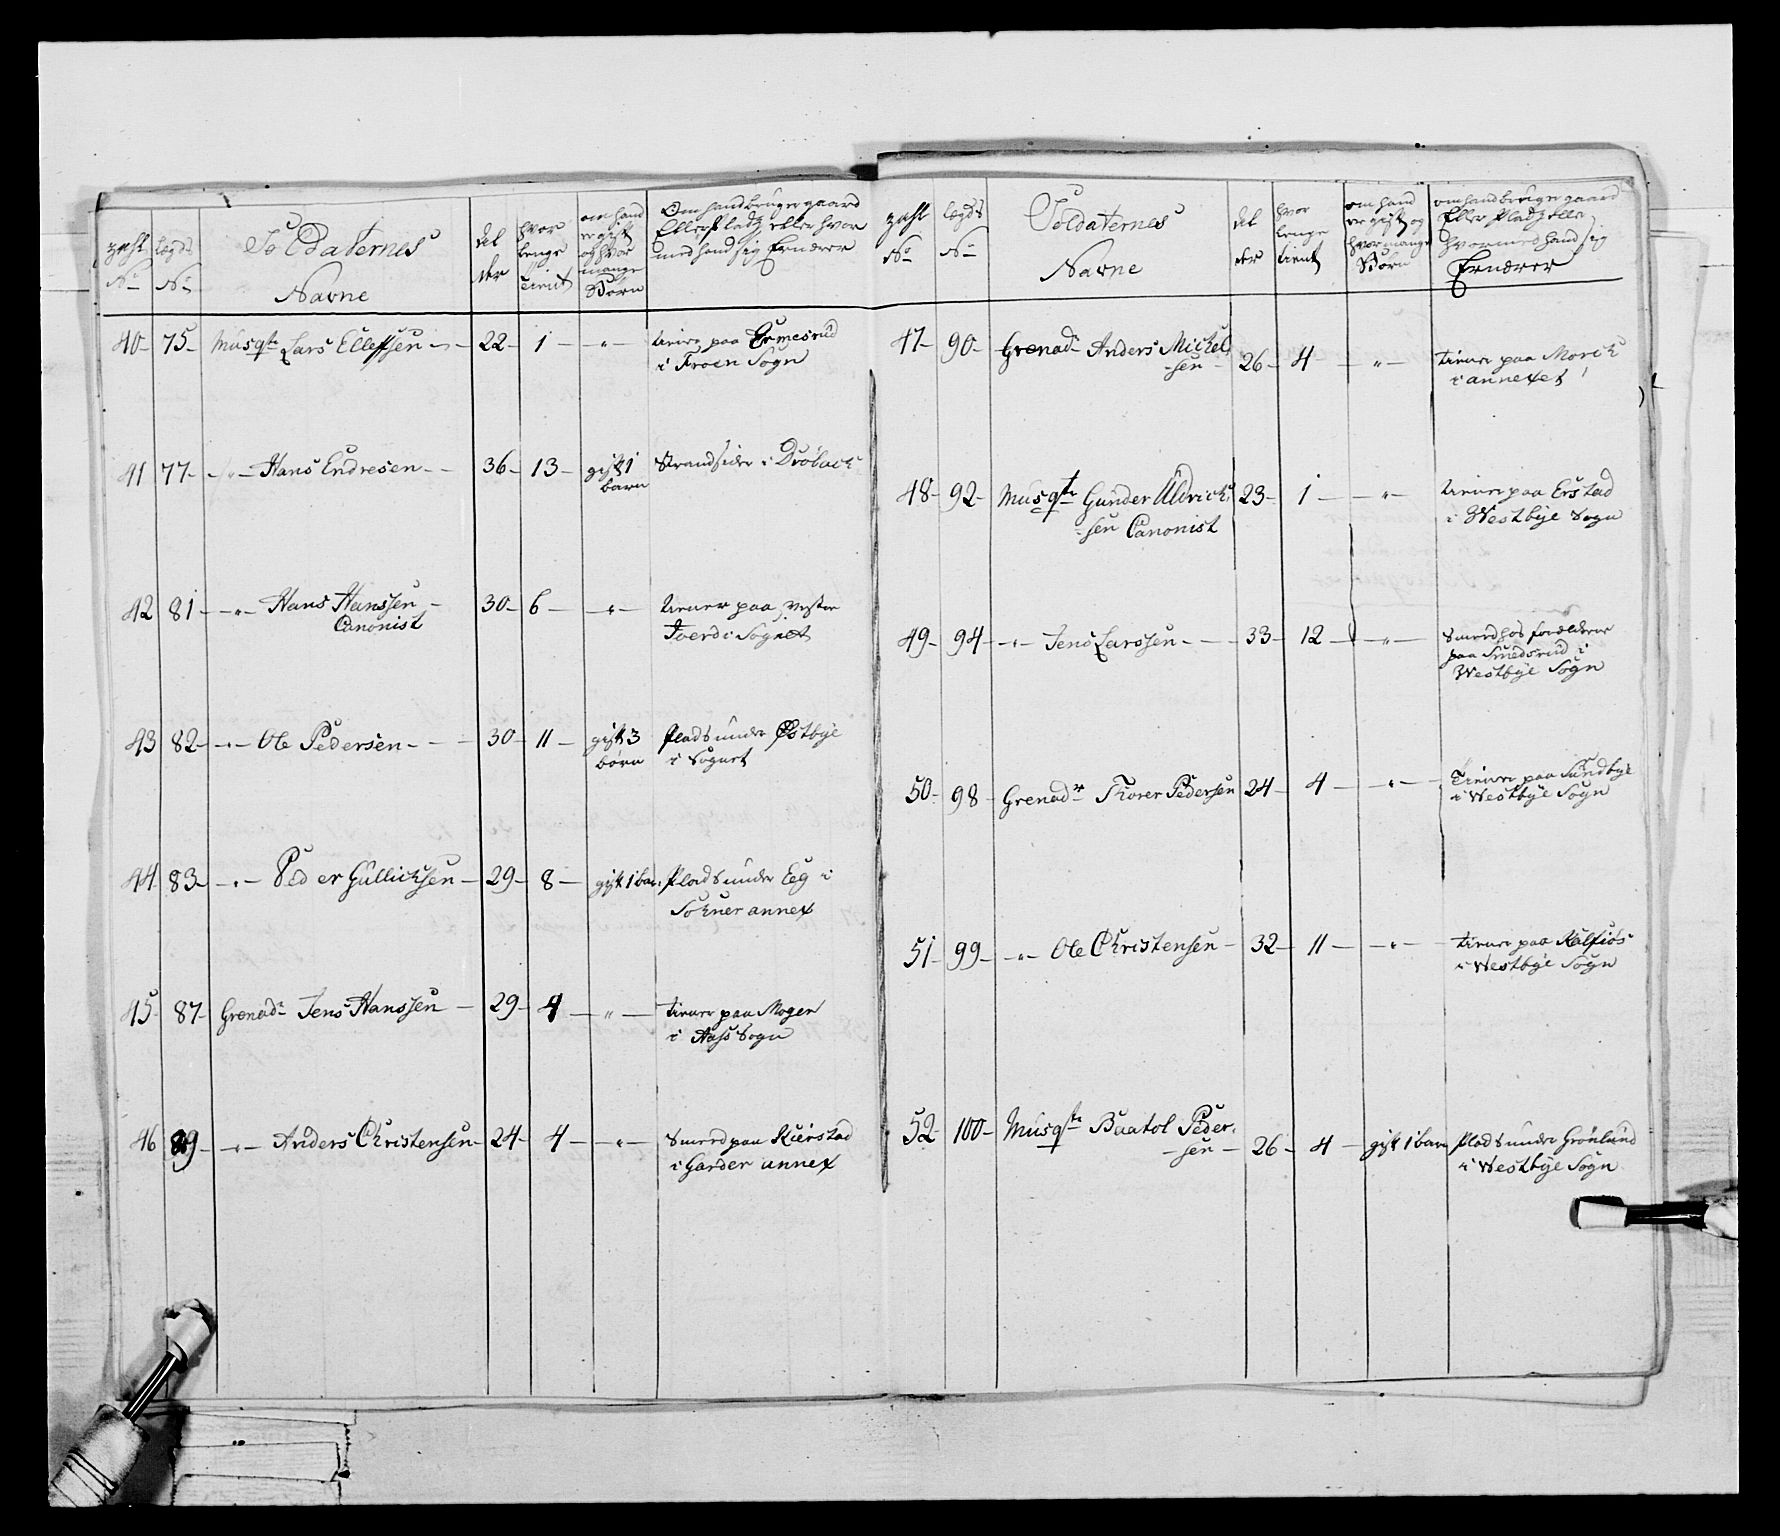 zahl No
Legds No
Soldaternes Navne
del der
hvor lenge tient
om hand er gift og hvor mange Børn
Om hand bruger gaard
Eller Pladz eller hvor
med hand sig Ernærer
40 - 75 - Musqtr Lars Elleffsen - 22 - 1 - " - tiener paa Ermesrud
i Froen Sogn
41 77 - " - Hans Endresen - 36 - 13 - gift 1 Strandsider i Drøback
barn
42 81 - " - Hans Hanssen - 30 - 6 - " - tiener paa Vestre
Canonist i Sognet
43 82 - " - Ole Pedersen - 30 - 11 - gift 3 Plads under Østbye
børn i Sognet
44 83 - " - Peder Gullichsen - 29 - 8 - gift 1 bar. Plads under Eeg i
annex
45 87 - Grenadr Jens Hanssen - 29 - 4 - " - tiener paa Moger
i Aass Sogn
46 89 - " - Anders Christensen - 24 - 4 - " - paa Kierstad
i Garder annex
zahl No
Legds No
Soldaternes Navne
del der
hvor lenge tient
om hand er gift og hvor mange Børn
om hand bruger gaard
Eller Pladz eller
hvormed hand sig
Ernærer
47 - 90 - Grenadr Anders Michel
-sen - 26 - 4 - " - tiener paa Morch
i annexet
48 - 92 - Musqtr Gunder Uldrich 23 - 1 - " - tiener paa Erstad
-sen Canonist i Westbye Sogn
49 - 94 - " - Jens Larssen - 33 - 12 - " - hos forældrene
paa Smedsrud i
Westbye Sogn
50 - 98 - Grenadr Thorer Pedersen 24 - 4 - " - Tiener paa Sundbye
i Westbye Sogn
51 - 99 - " - Ole Christensen - 32 - 11 - " - tiener paa Kalfiøs
i Westbye Sogn
52 - 100 - Musqtr Baatol Peder-
-sen - 26 - 4 - gift 1 barn Plads under Grønlund
i Westbye Sogn